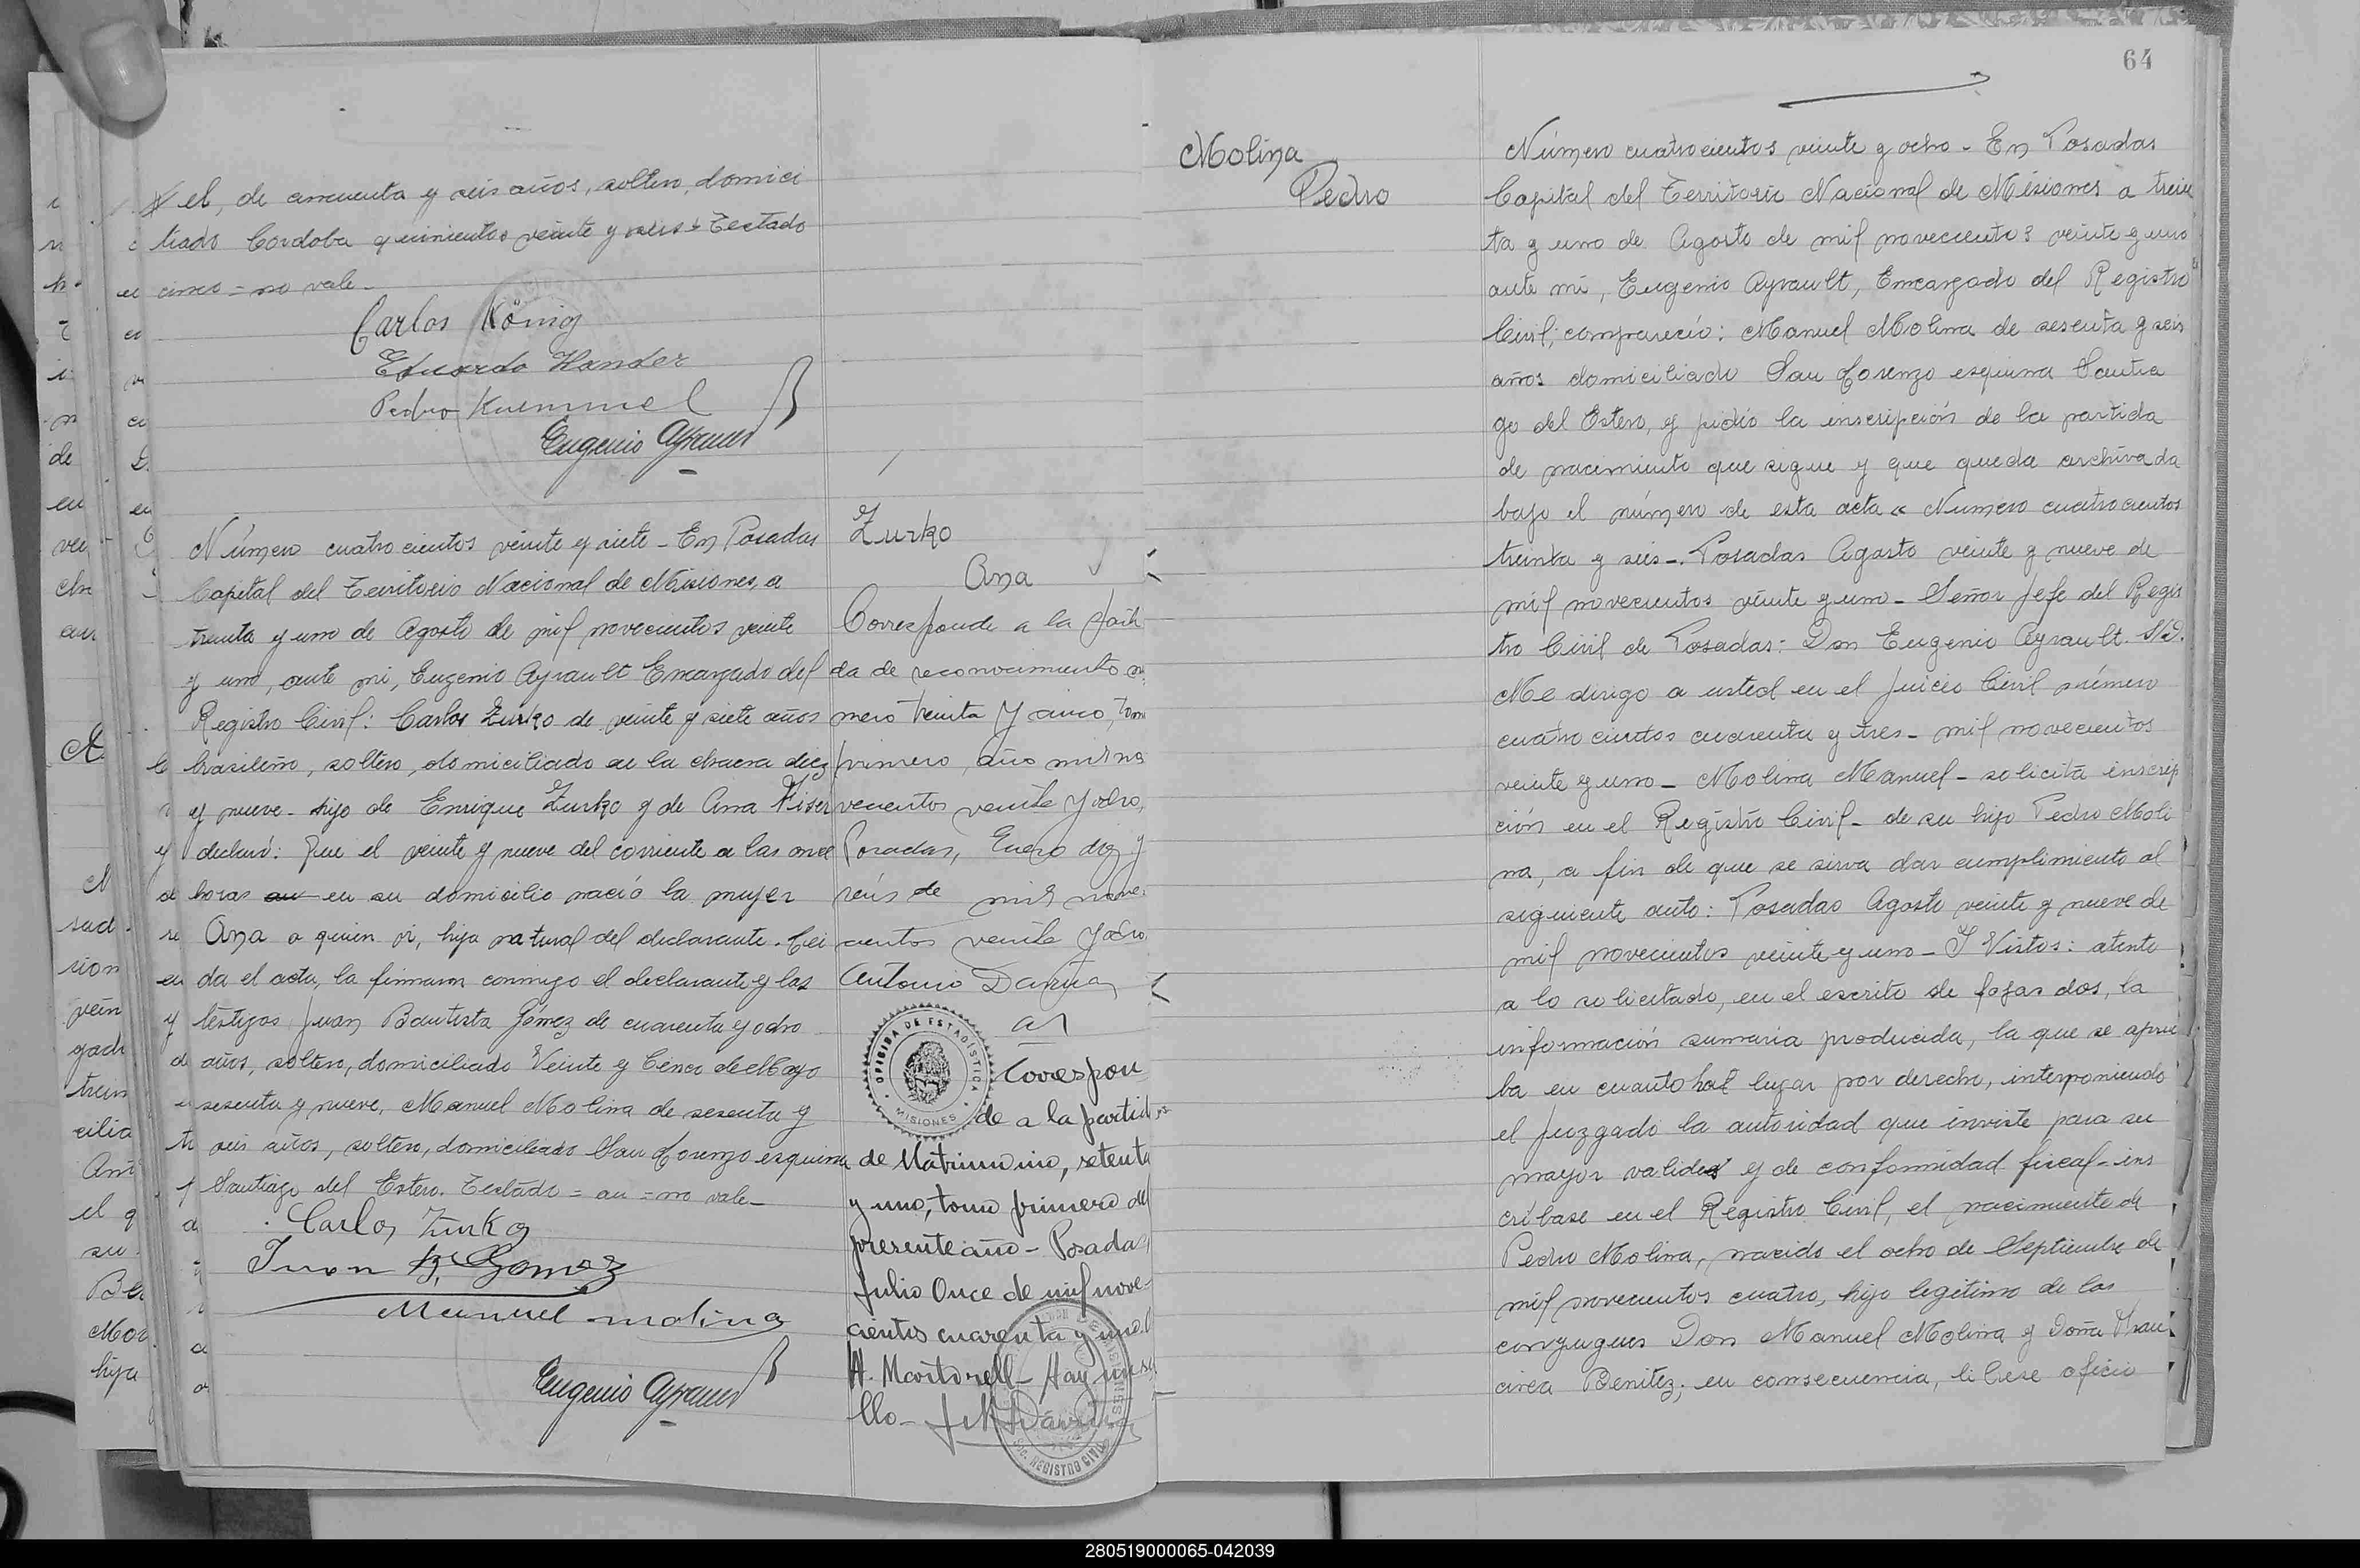 el, de cincuenta y seis años, soltero, domici
liado Cordoba quinientos veinte y seis = Testado
cinco = no vale -
Carlos König
Eduardo Hander
Pedro Kuemmel
Eugenio Ayrault
Número cuatrocientos veinte y siete - En Posadas
Capital del Territorio Nacional de Misiones, a
treinta y uno de Agosto de mil novecientos veinte
y uno, ante mi, Eugenio Ayrault Encargado del
Registro Civil: Carlos Zurko de veinte y siete años
brasileño, soltero, domiciliado en la chacra diez
y nueve - hijo de Enrique Zurko y de Ana Fiser
y declaró: Que el veinte y nueve del corriente a las once
horas au en su domicilio nació la mujer
Ana a quien vi, hija natural del declarante. Lei
da el acta, la firmaron conmigo el declarante y los
testigos Juan Bautista Gómez de cuarenta y ocho
años, soltero, domiciliado Veinte y Cinco de Mayo
sesenta y nueve, Manuel Molina de sesenta y
seis años, soltero, domiciliado San Lorenzo esquina
Santiago del Estero. Testado = au = no vale -
Carlos Zurko
Juan B. Gomez
Manuel molina
Eugenio Ayrault
Zurko
Ana
Corresponde a la parti
da de reconocimiento nú
mero treinta y cinco, tomo
primero, año mil no
vecientos veinte y ocho,
Posadas, Enero diez y
seis de mil nove
cientos veinte y ocho.
Antonio
OFICINA DE ESTADISTICA
MISIONES
Correspon
de a la partida
de Matrimonio, setenta
y uno, tomo primero del
presente año - Posadas
Julio Once de mil nove-
cientos cuarenta y uno.
H. Martorell - Hay un se
llo -
REGISTRO CIVIL
64
Molina
Pedro
Número cuatrocientos veinte y ocho - En Posadas
Capital del Territorio Nacional de Misiones a trein
ta y uno de Agosto de mil novecientos veinte y uno
ante mi, Eugenio Ayrault, Encargado del Registro
Civil; compareció: Manuel Molina de sesenta y seis
años domiciliado San Lorenzo esquina Santia
go del Estero, y pidió la inscripción de la partida
de nacimiento que sigue y que queda archivada
bajo el número de esta acta « Numero cuatrocientos
treinta y seis -. Posadas Agosto veinte y nueve de
mil novecientos veinte y uno - Señor Jefe del Regis
tro Civil de Posadas: Don Eugenio Ayrault. S/D.
Me dirigo a usted en el Juicio Civil número
cuatrocientos cuarenta y tres - mil novecientos
veinte y uno - Molina Manuel - solicita inscrip
ción en el Registro Civil - de su hijo Pedro Moli
na, a fin de que se sirva dar cumplimiento al
siguiente auto: Posadas Agosto veinte y nueve de
mil novecientos veinte y uno - Y Vistos: atento
a lo solicitado, en el escrito de fojas dos, la
información sumaria producida, la que se aprue
ba en cuanto haf lugar por derecho, interponiendo
el Juzgado la autoridad que inviste para su
mayor validez y de conformidad fiscal - ins
críbase en el Registro Civil, el nacimiento de
Pedro Molina, nacido el ocho de Septiembre de
mil novecientos cuatro, hijo legítimo de los
conyugues Don Manuel Molina y Doña Fran
cisca Benitez; en consecuencia, líbrese oficio
280519000065-042039